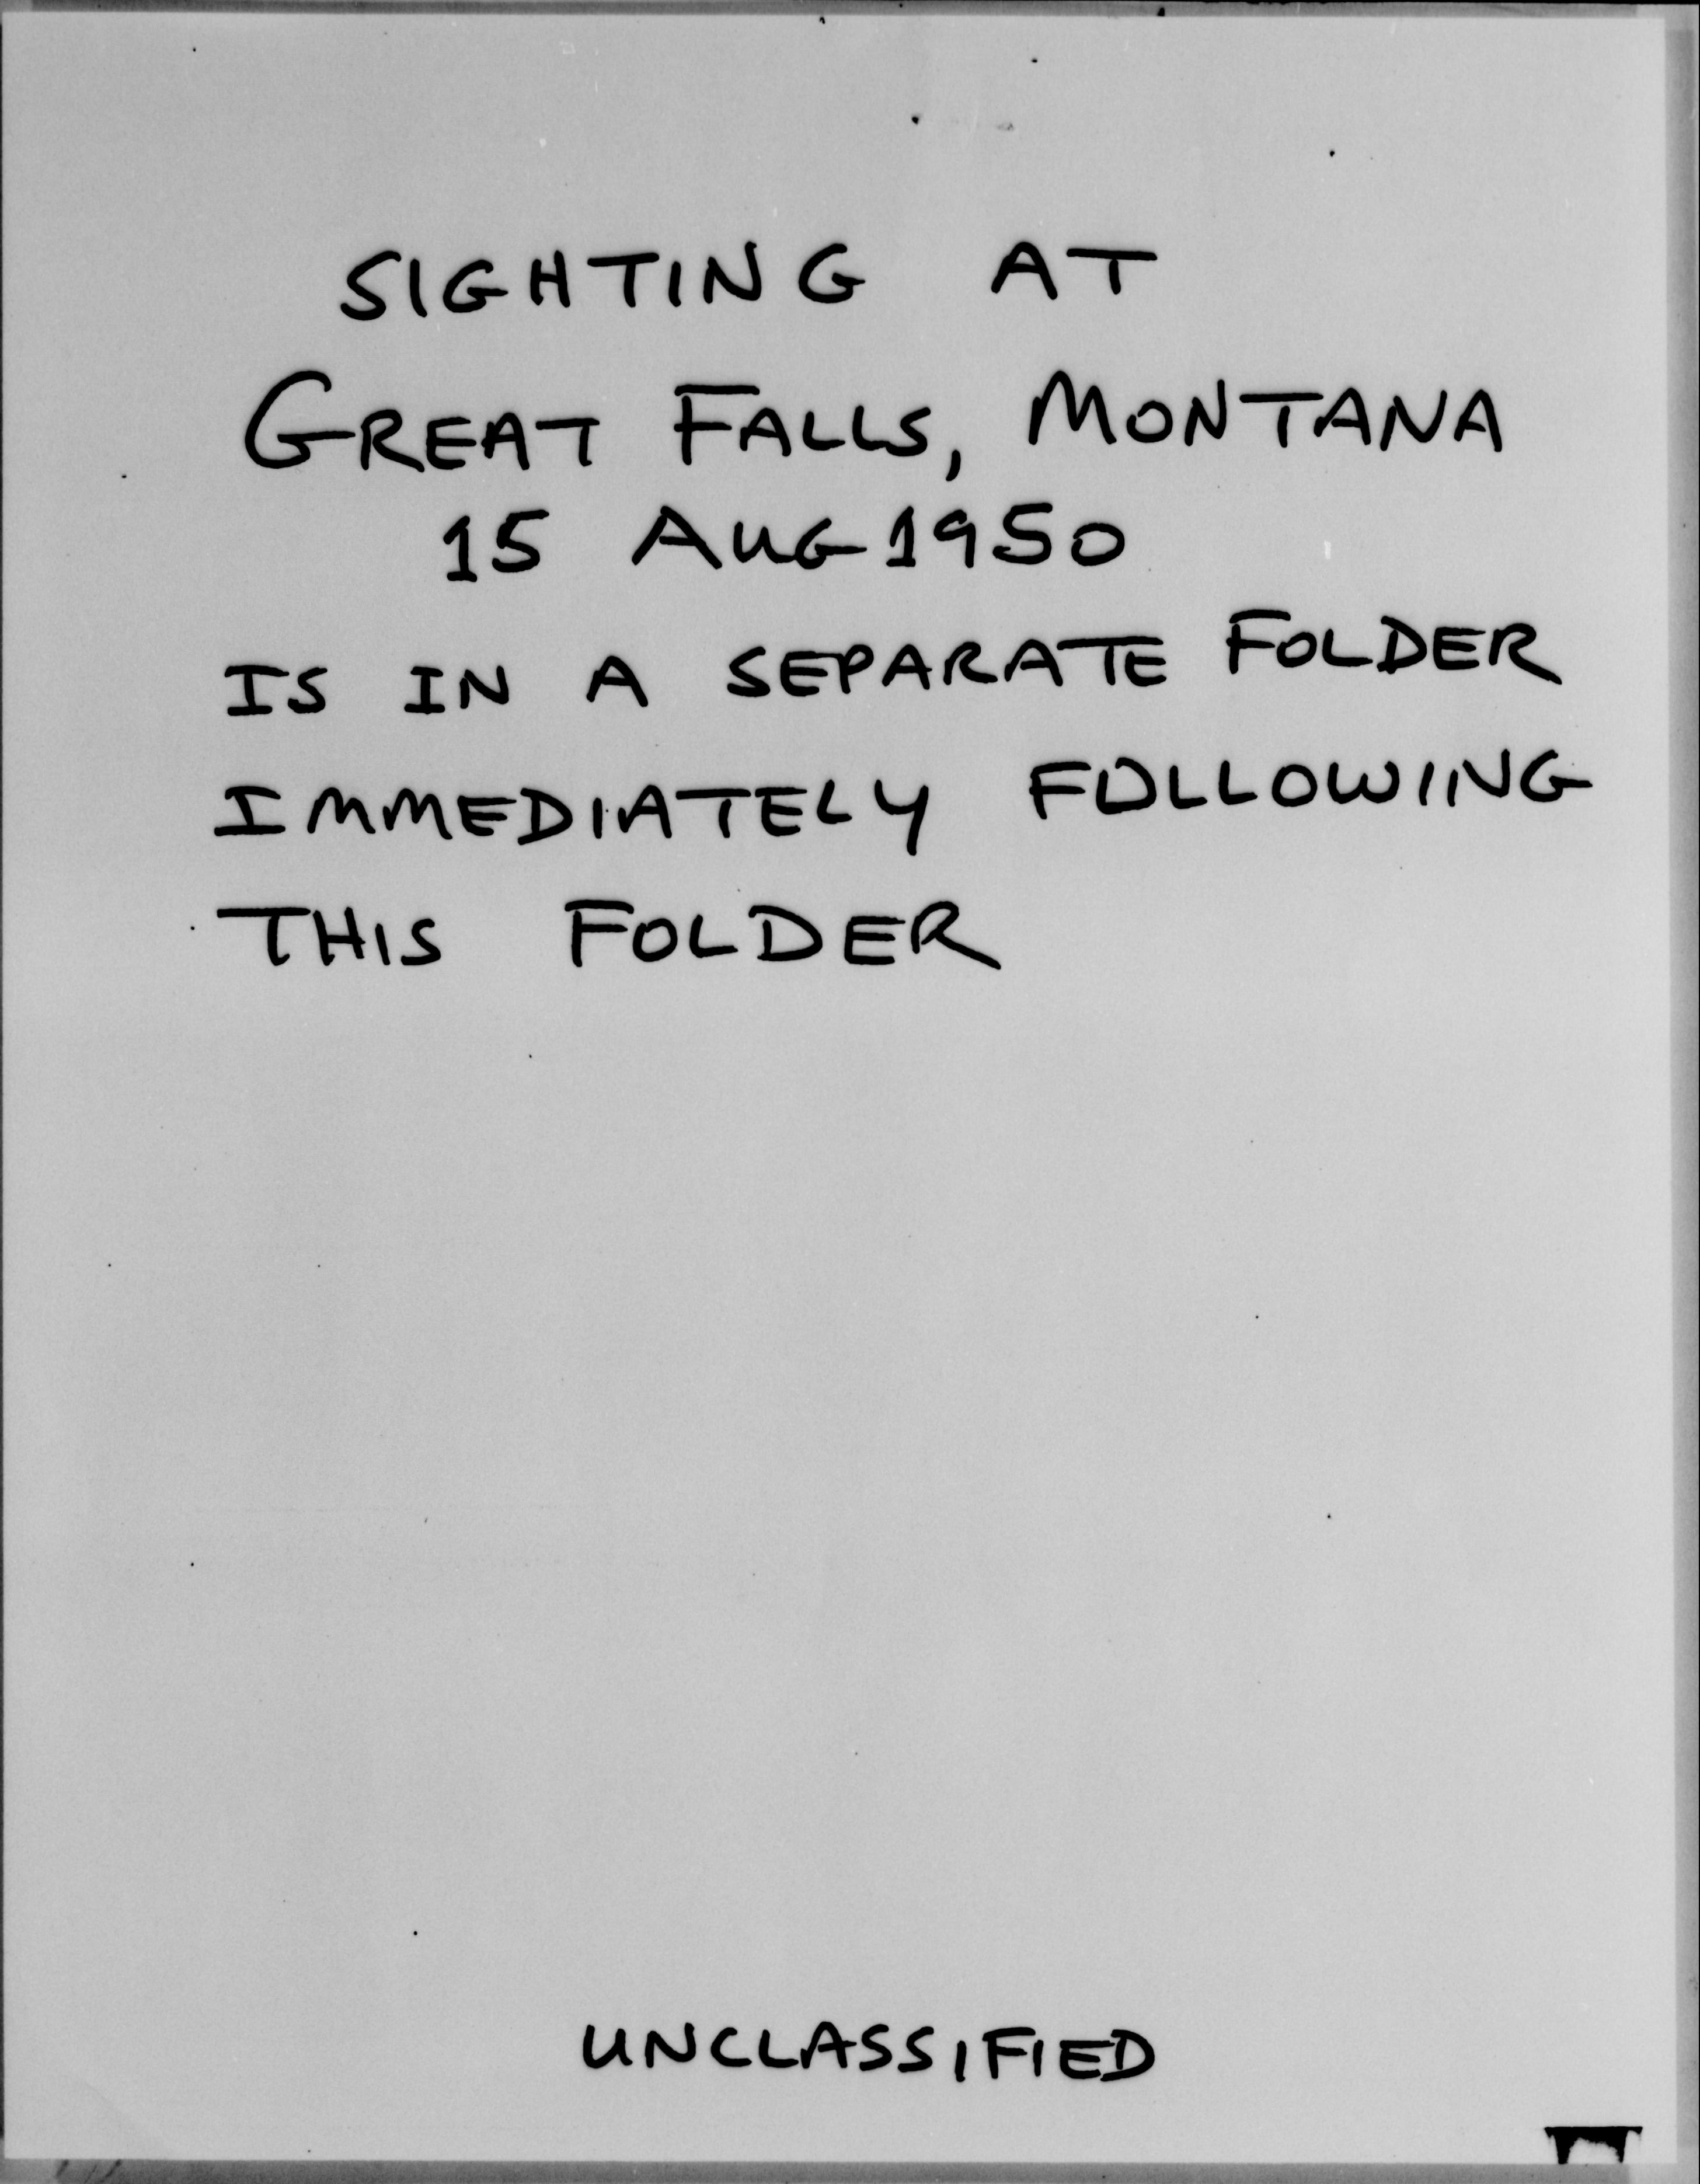 SIGHTING AT
GREAT FALLS, MONTANA
15 AUG 1950
IS IN A SEPARATE FOLDER
IMMEDIATELY FOLLOWING
THIS FOLDER
UNCLASSIFIED